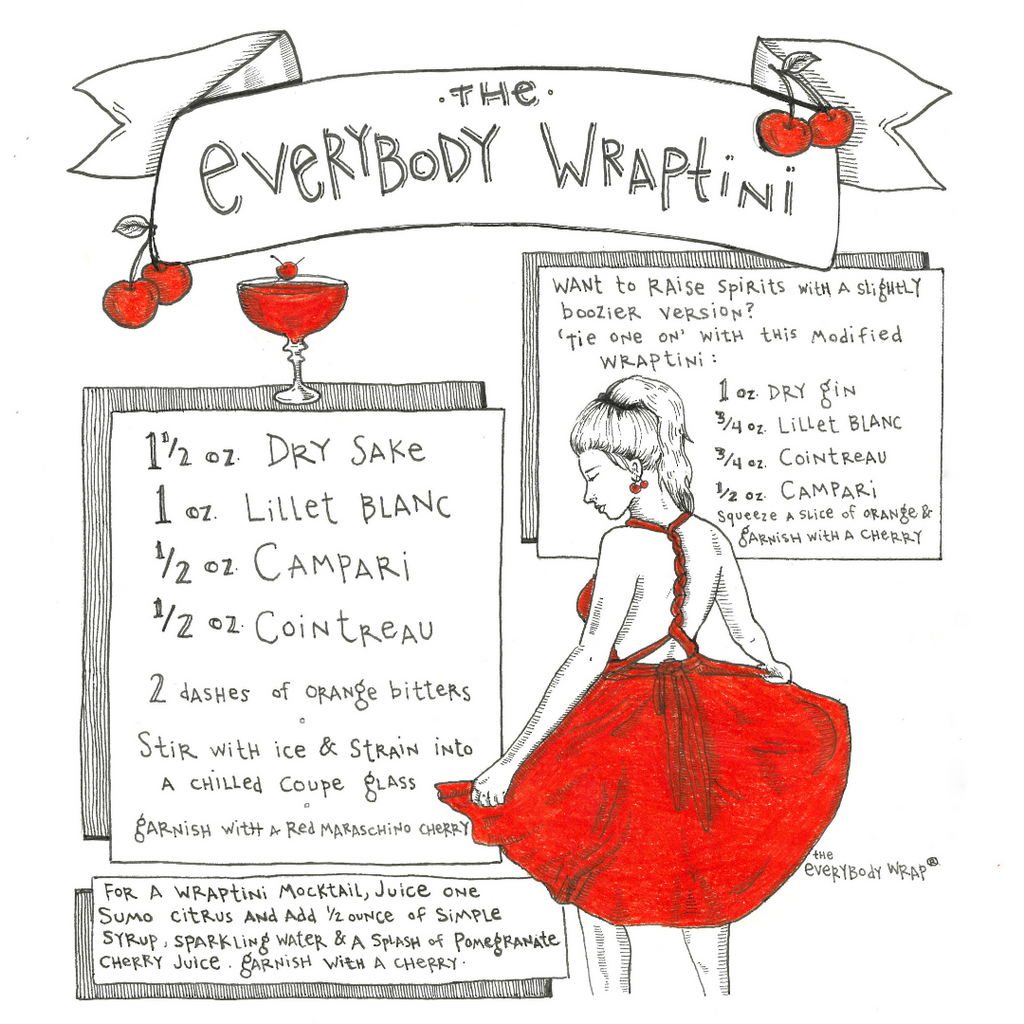 ·THE·
EVERYBODY WRAPtini
WANT to RAISE SPIRITS WITH A SLIGHTLY
BOOZIER VERSION?
'TIE ONE ON' WITH THIS MODIFIED
WRAPTINI:
1 oz. DRY GIN
3/4 oz. LILLET BLANC
3/4 oz. COINTREAU
1/2 oz. CAMPARI
SQUEEZE A SLICE OF ORANGE &
GARNISH WITH A CHERRY
1 1/2 oz. DRY SAKE
1 oz. LILLET BLANC
1/2 oz. CAMPARI
1/2 oz. COINTREAU
2 DASHES OF ORANGE BITTERS
STIR WITH ICE & STRAIN INTO
A CHILLED COUPE GLASS
GARNISH WITH A RED MARASCHINO CHERRY
FOR A WRAPTINI MOCKTAIL, JUICE ONE
SUMO CITRUS AND ADD 1/2 OUNCE OF SIMPLE
SYRUP, SPARKLING WATER & A SPLASH OF POMEGRANATE
CHERRY JUICE. GARNISH WITH A CHERRY.
THE
EVERYBODY WRAP®